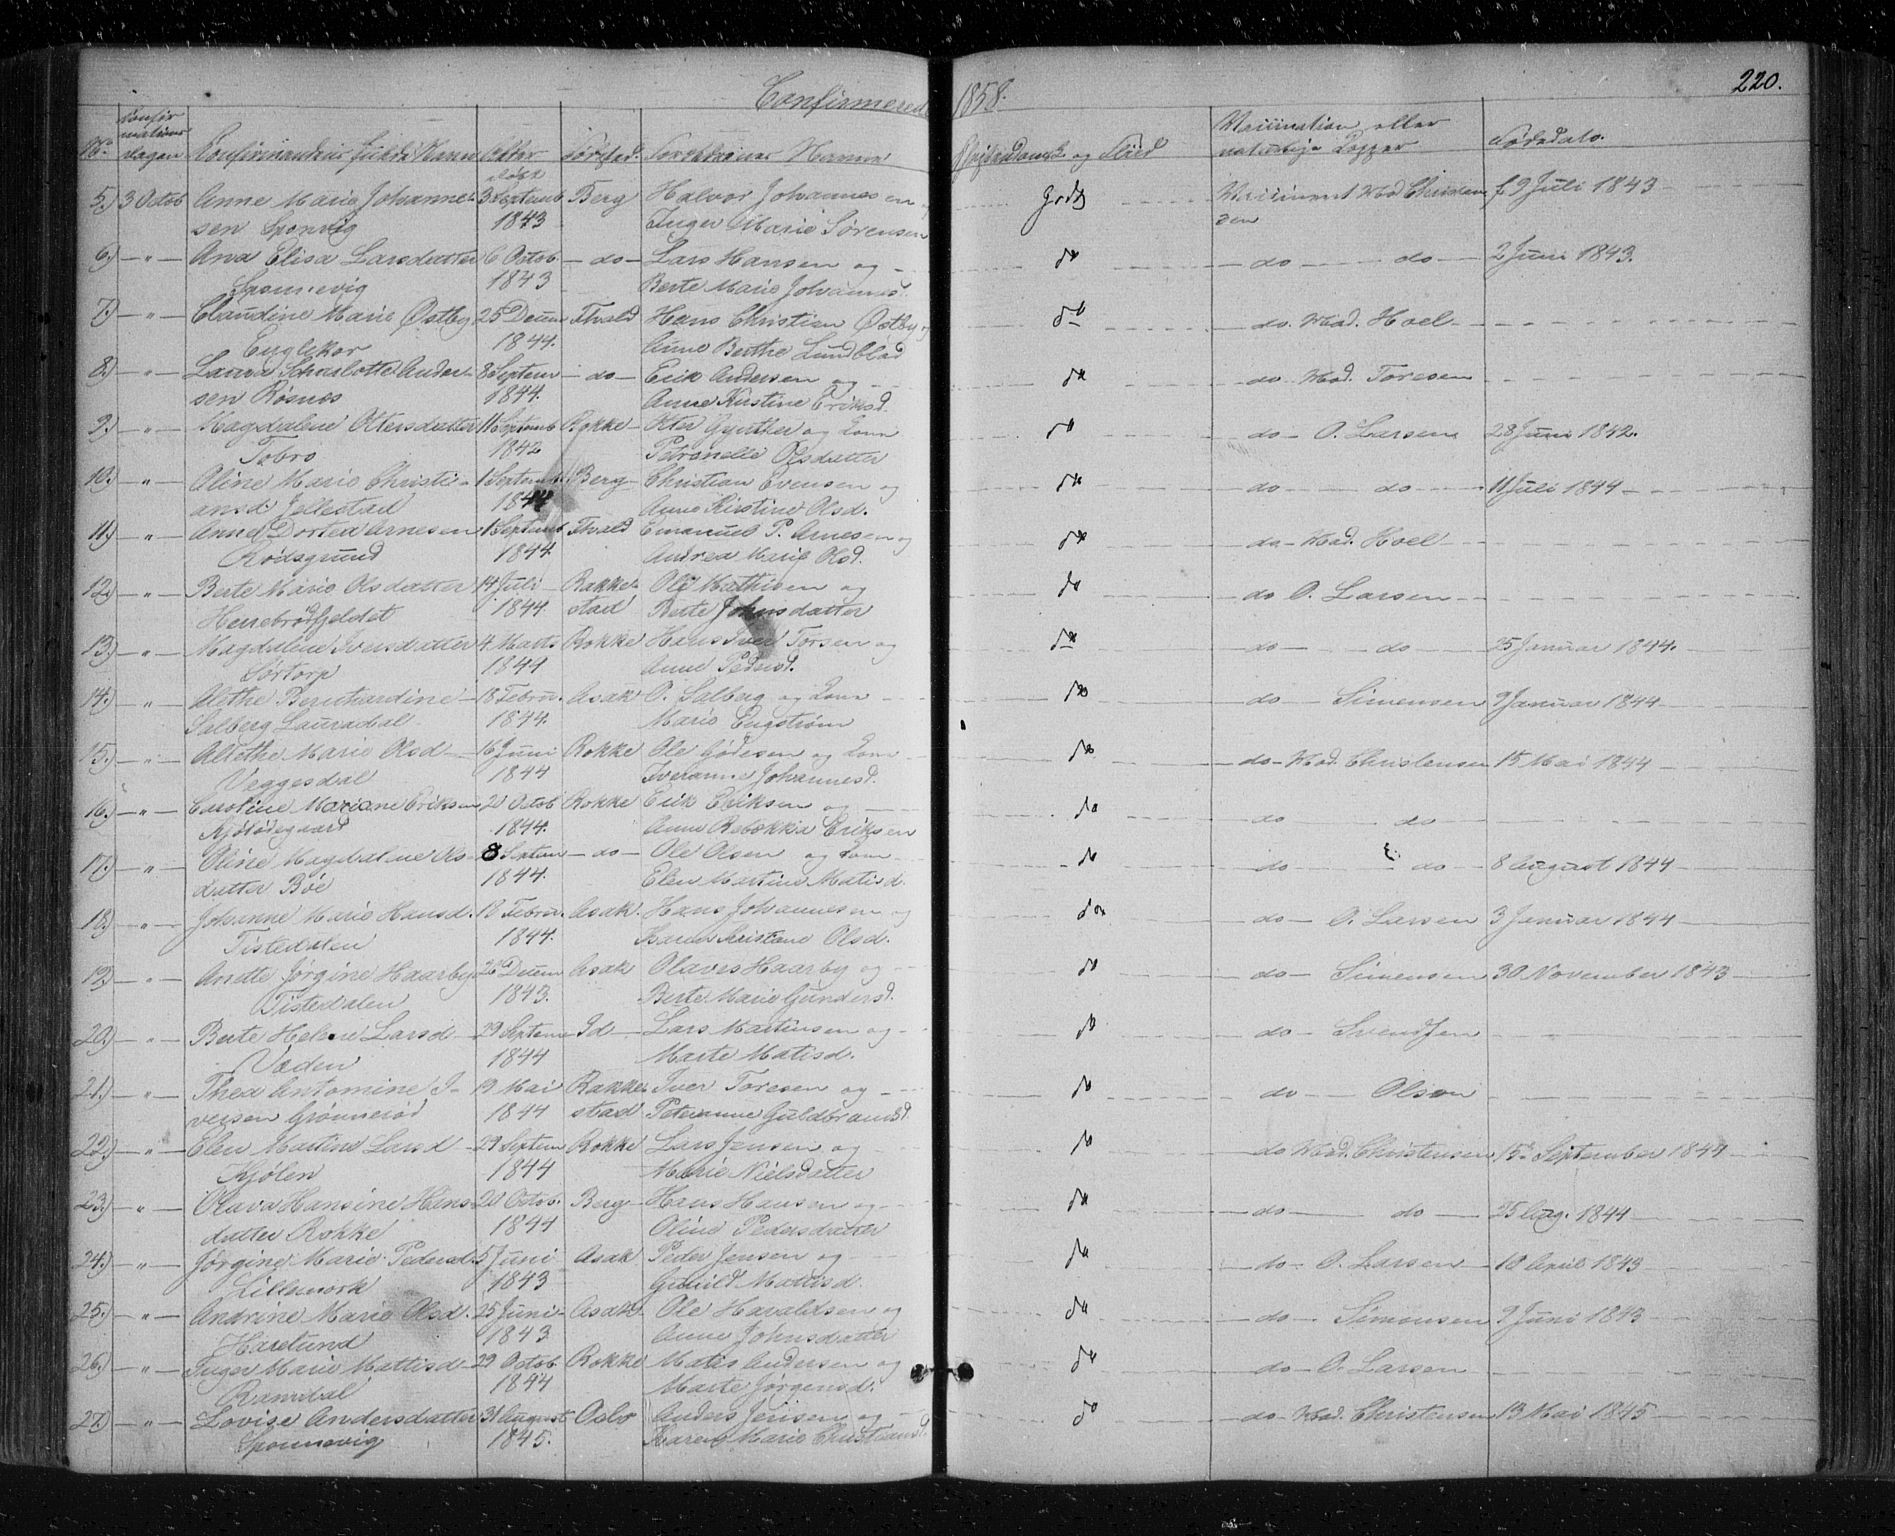 Confirmerede 1858. 220.
No. Confirmationsdagen Confirmandens fulde Navn Alder Fødested. Forældrenes Navne Christendomsk. og Flid Vaccination eller naturlige Kopper Fødsdato.
5) 3 Octob Anne Marie Johanne- 3 Septemb Berg Halvor Johannesen og Godt Vaccineret Mad Christen f. 9 Juli 1843
sen Sponvig 1843 Inger Marie Sørensen sen
6.) — " — Ana Elisa Larsdatter 6 Octob — do — Lars Hansen og do do do 2 Juni 1843.
Sponevig 1843 Berte Marie Johannes.
7.) — " — Claudine Marie Østby 25 Decem Fhald Hans Christian Østby og do do. Mad. Hoel
Englekor 1844. Anne Berthe Lundblad
8.) — " — Laura Scharlotte Ander- 8 Septem — do — Erik Andersen og do do Mad. Toresen
sen Røsnes 1844. Anne Kirstine Eriksd.
9.) — " — Magdalene Ottersdatter 11 Septemb Rokke Otter Gynther og Kone do do O. Larsen 28 Juni 1842.
Tobro 1842 Petronelle Olsdatter
10.) — " — Oline Marie Christi- 1 Septemb Berg Christian Evensen og do do do 11 Juli 1844
ansd. Jellestad 1844 Anne Kirstine Olsd.
11.) — " — Anne Dortea Arnesen 1 Septemb Fhald Emanuel P. Arnesen og do do Mad. Hoel
Rødsgrund 1844. Andrea Marie Olsd.
12.) — " — Berte Marie Olsdatter 14 Juli Rakke- Ole Mathisen og do do O. Larsen
Hennebrødfjeldet 1844. stad Berte Johnsdatter
13.) — " — Magdalene Iversdatter 4 Marts Rokke Hans Iver Torsen og do do do 25 Januar 1844.
Sørtorp 1844 Anne Pedersd.
14.) — " — Alethe Bernhardine 18 Febru. Asak O. Salberg og Kone do do Simensen 9 Januar 1844
Salberg Lauradal 1844. Marie Engstrøm
15.) — " — Alethe Marie Olsd 16 Juni Rokke Ole Gødesen og Kone do do Mad. Christensen 15 Mai 1844
Veggesdal 1844 Iveranne Johannesd.
16.) — " — Caroline Mariane Eriksen 20 Octob Rokke Erik Eriksen og do do do
Kjølødegaard 1844. Anne Rebekka Eriksen
17.) — " — Oline Magdalene Ols- 8 Septem — do — Ole Olsen og Kone do do do 8 August 1844
datter Bøe 1844. Elen Martine Matisd.
18.) — " — Johanne Marie Hansd. 18 Febru. Asak Hans Johannesen og do do O. Larsen 3 Januar 1844
Tistedalen 1844. Karen Kristane Olsd.
19.) — " — Anette Jørgine Haarby 26 Decem Asak Olaves Haarby og do do Simensen 30 November 1843
Tistedalen 1843. Berte Marie Gundersd.
20.) — " — Berte Helene Larsd 29 Septem Id Lars Martinsen og do do Svendsen
Veden 1844 Marte Matisd.
21.) — " — Thea Antomine I- 19 Mai Rakke Iver Toresen og do do Olsen
versen Grønnerød 1844 stad Peteranne Guldbrandsd.
22.) — " — Elen Martine Larsd 29 Septem Rokke Lars Jensen og do do Mad. Christensen 15 September 1844
Kjølen 1844 Marie Nielsdatter
23.) — " — Olava Hansine Hans- 20 Octob. Berg Hans Hansen og do do do 25 Aug. 1844
datter Rokke 1844 Oline Pedersdatter
24.) — " — Jørgine Marie Pedersd. 5 Juni Asak Peder Jensen og do do O. Larsen 18 April 1843
Lillemork 1843 Gunild Mattisd.
25.) — " — Andrine Marie Olsd. 25 Juni Asak Ole Haraldsen og do do Simonsen 9 Juni 1843
Harelund 1843 Anne Johnsdatter
26.) — " — Inger Marie Mattisd 29 Octob Rokke Matis Andersen og do do O. Larsen
Ramdal 1844 Marte Jørgensd.
27.) — " — Lovise Andersdatter 31 August Oslo Anders Jensen og do do Mad. Christensen 13 Mai 1845
Sponnevig 1845. Karen Marie Christiansd.